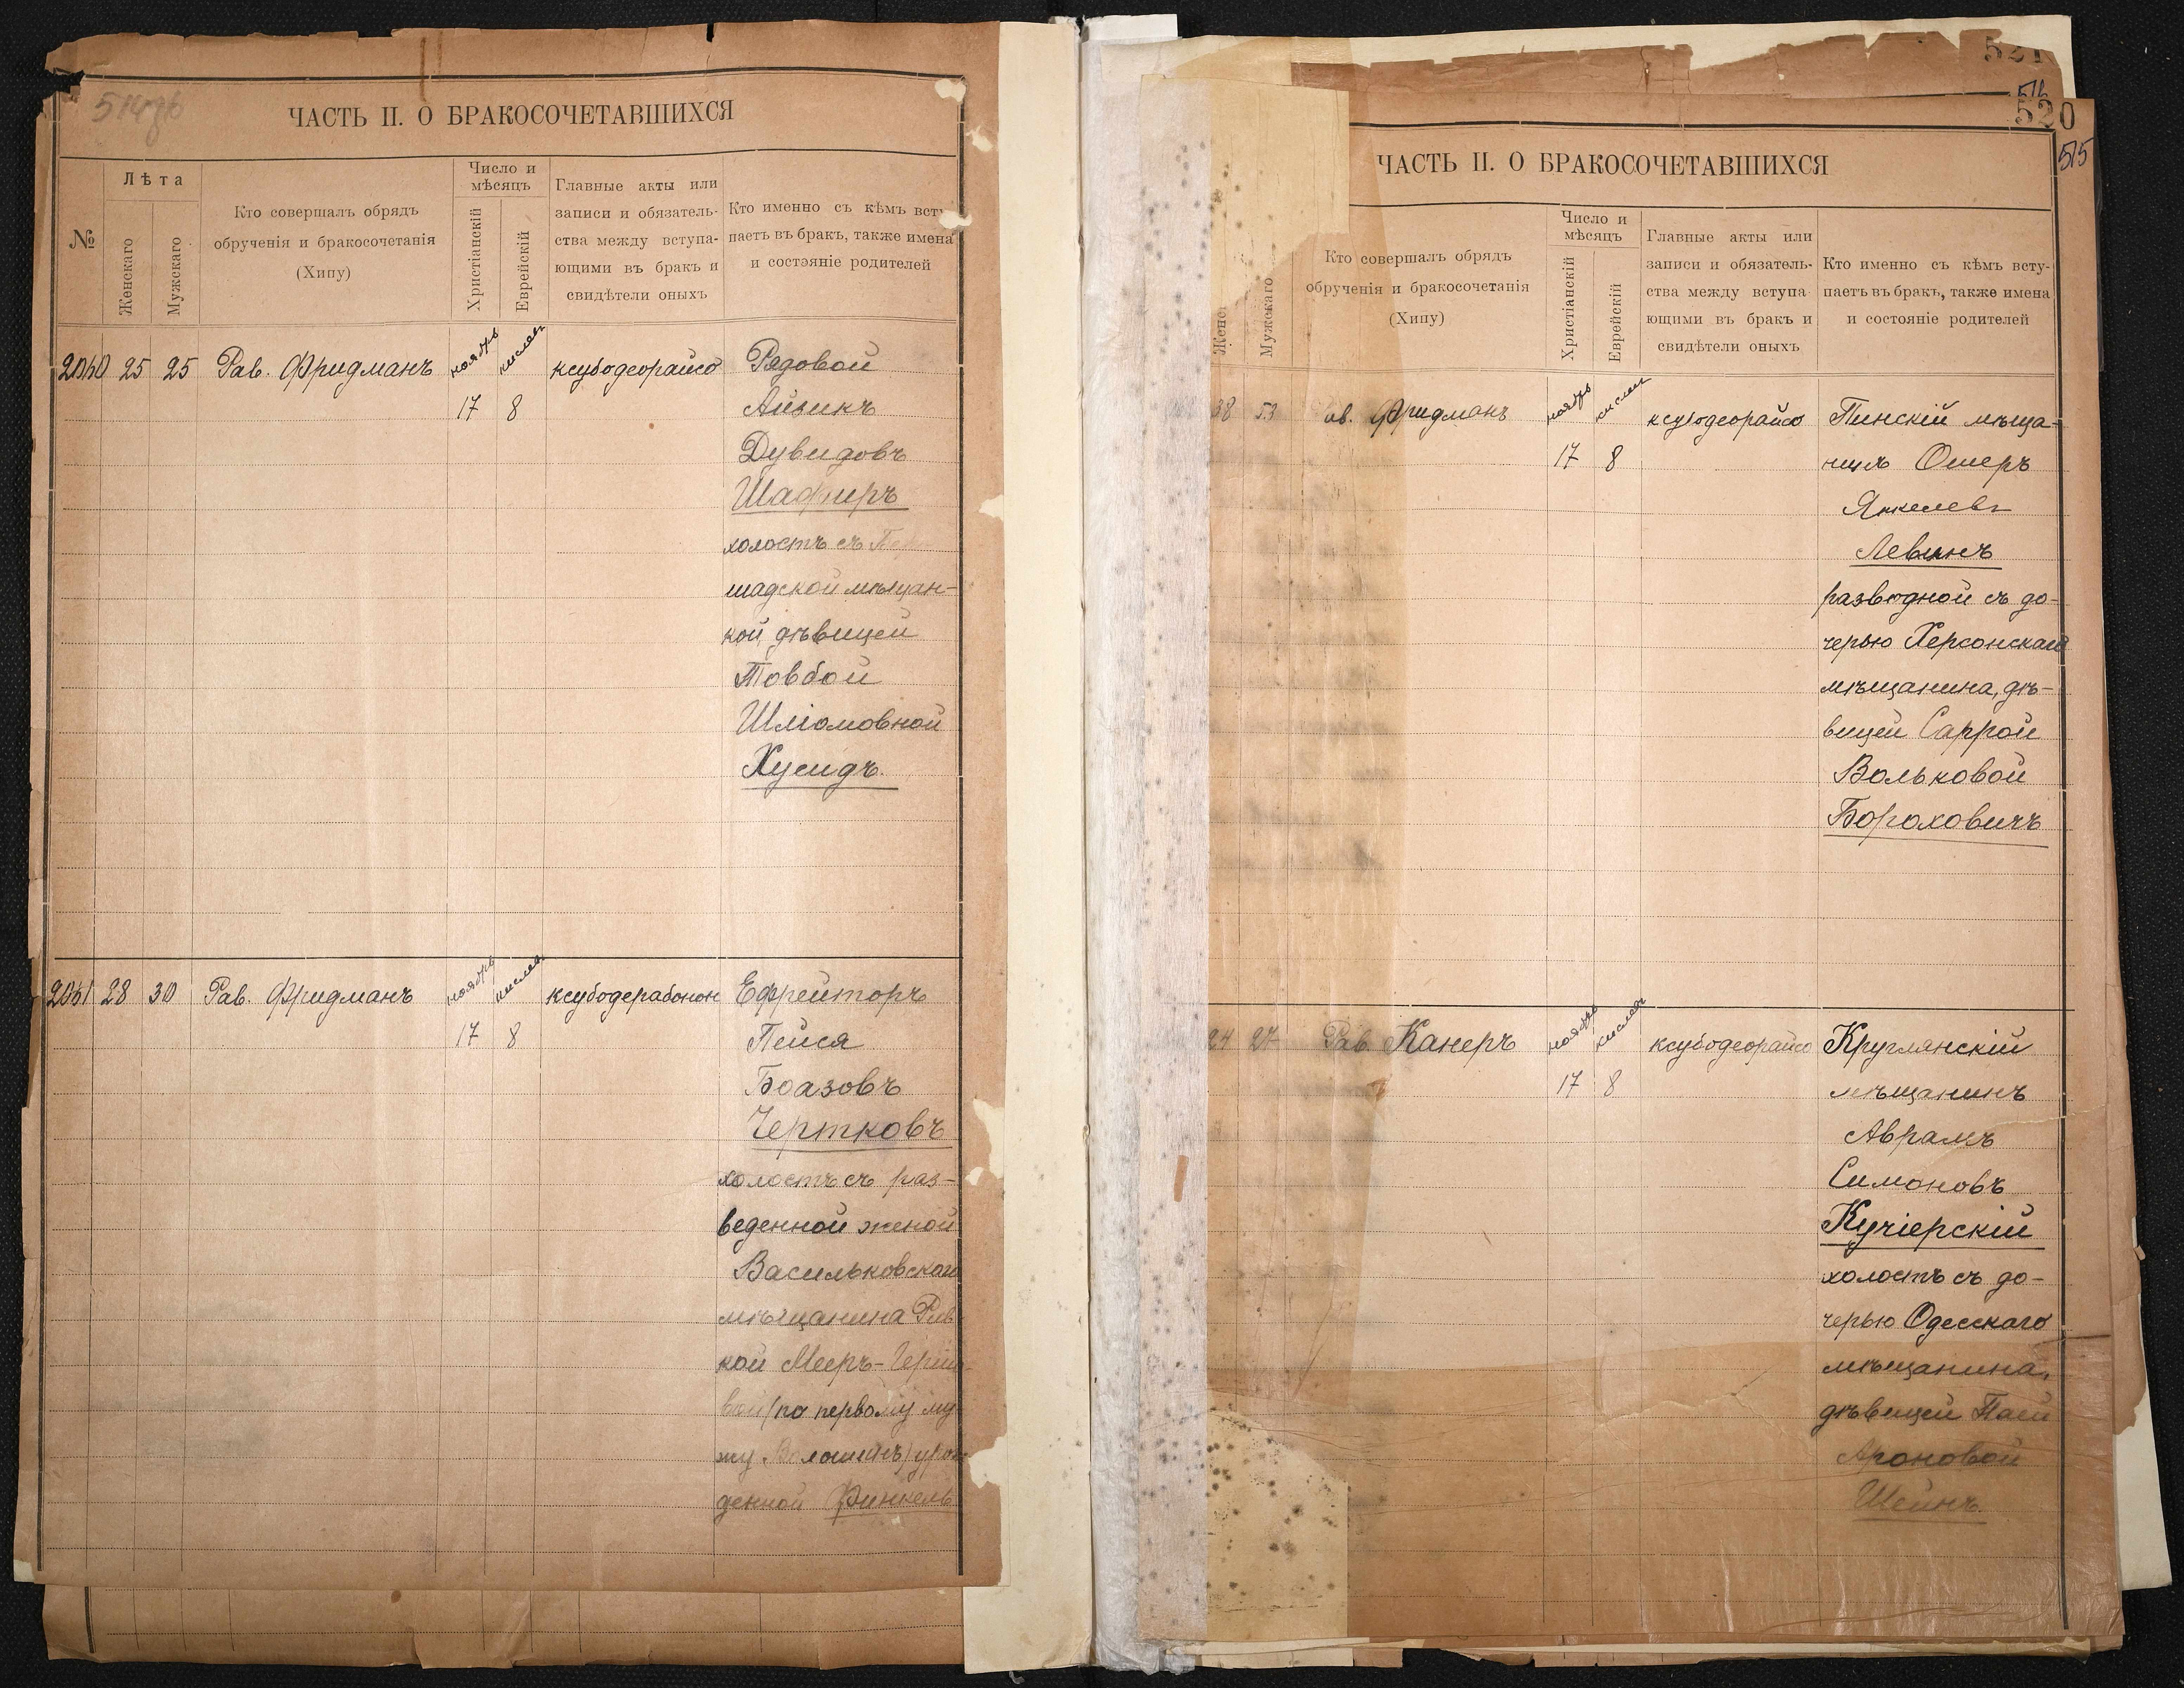 ЧАСТЬ II. О БРАКОСОЧЕТАВШИХСЯ
№
Лѣта
Женскаго
Мужскаго
Кто совершалъ обрядъ
обрученія и бракосочетанія
(Хипу)
Число и
мѣсяцъ
Христіанскій
Еврейскій
Главные акты или
записи и обязатель-
ства между вступа-
ющими въ бракъ и
свидѣтели оныхъ
Кто именно съ кѣмъ всту
паетъ въ бракъ, также имена
и состояніе родителей
25 25 Рав. Фридманъ ноябрь кислев ксубодеорайсо Рядовой
17 8 Айзикъ
Дувидовъ
Шафиръ
холостъ съ
шадской мѣщан-
кой, дѣвицей
Товбой
Шліомовной
Хусидъ.
28 30 Рав. Фридманъ ноябрь кислев ксубодерабонон Ефрейторъ
17 8 Пейся
Боазовъ
Чертковъ
холостъ съ раз-
веденной женой
Васильковскаго
мѣщанина Рив
кой Мееръ-Герш
вой (по первому му
жу Волошинъ) урож
денной Финкель
520
515
ЧАСТЬ II. О БРАКОСОЧЕТАВШИХСЯ
Мужскаго
Кто совершалъ обрядъ
обрученія и бракосочетанія
(Хипу)
Число и
мѣсяцъ
Христіанскій
Еврейскій
Главные акты или
записи и обязатель-
ства между вступа
ющими въ бракъ и
свидѣтели оныхъ
Кто именно съ кѣмъ всту-
паетъ въ бракъ, также имена
и состояніе родителей
38 53 ав. Фридманъ ноябрь кислев ксубодеорайсо Пинскій мѣща-
17 8 нинъ Ошеръ
Янкелевъ
Левинъ
разводной съ до-
черью Херсонскаго
мѣщанина, дѣ-
вицей Саррой
Вольковой
Бороховичъ
24 27 Рав. Канеръ ноябрь кислев ксубодеорайсо Круглянскій
17 8 мѣщанинъ
Аврамъ
Симоновъ
Кучіерскій
холостъ съ до-
черью Одесскаго
мѣщанина,
дѣвицей Паей
Ароновой
Шейнъ.